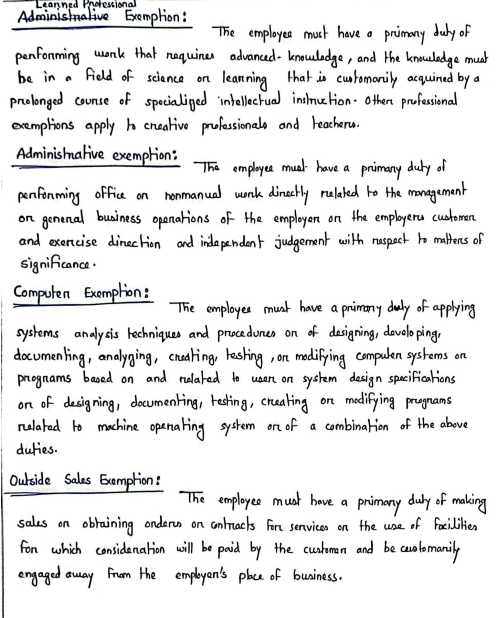 Learned Professional
Administrative Exemption:
The employee must have a primary duty of
performing work that requires advanced-knowledge, and the knowledge must
be in a field of science or learning that is customarily acquired by a
prolonged course of specialized intellectual instruction. Other professional
exemptions apply to creative professionals and teachers.
Administrative exemption:
The employee must have a primary duty of
performing office or nonmanual work directly related to the management
or general business operations of the employer or the employers customer
and exercise direction and independent judgement with respect to matters of
significance.
Computer Exemption:
The employee must have a primary duty of applying
systems analysis techniques and procedures or of designing, developing,
documenting, analyzing, creating, testing, or modifying computer systems or
programs based on and related to user or system design specifications
or of designing, documenting, testing, creating or modifying programs
related to machine operating system or of a combination of the above
duties.
Outside Sales Exemption:
The employee must have a primary duty of making
sales or obtaining orders or contracts for services or the use of facilities
for which consideration will be paid by the customer and be customarily
engaged away from the employer's place of business.